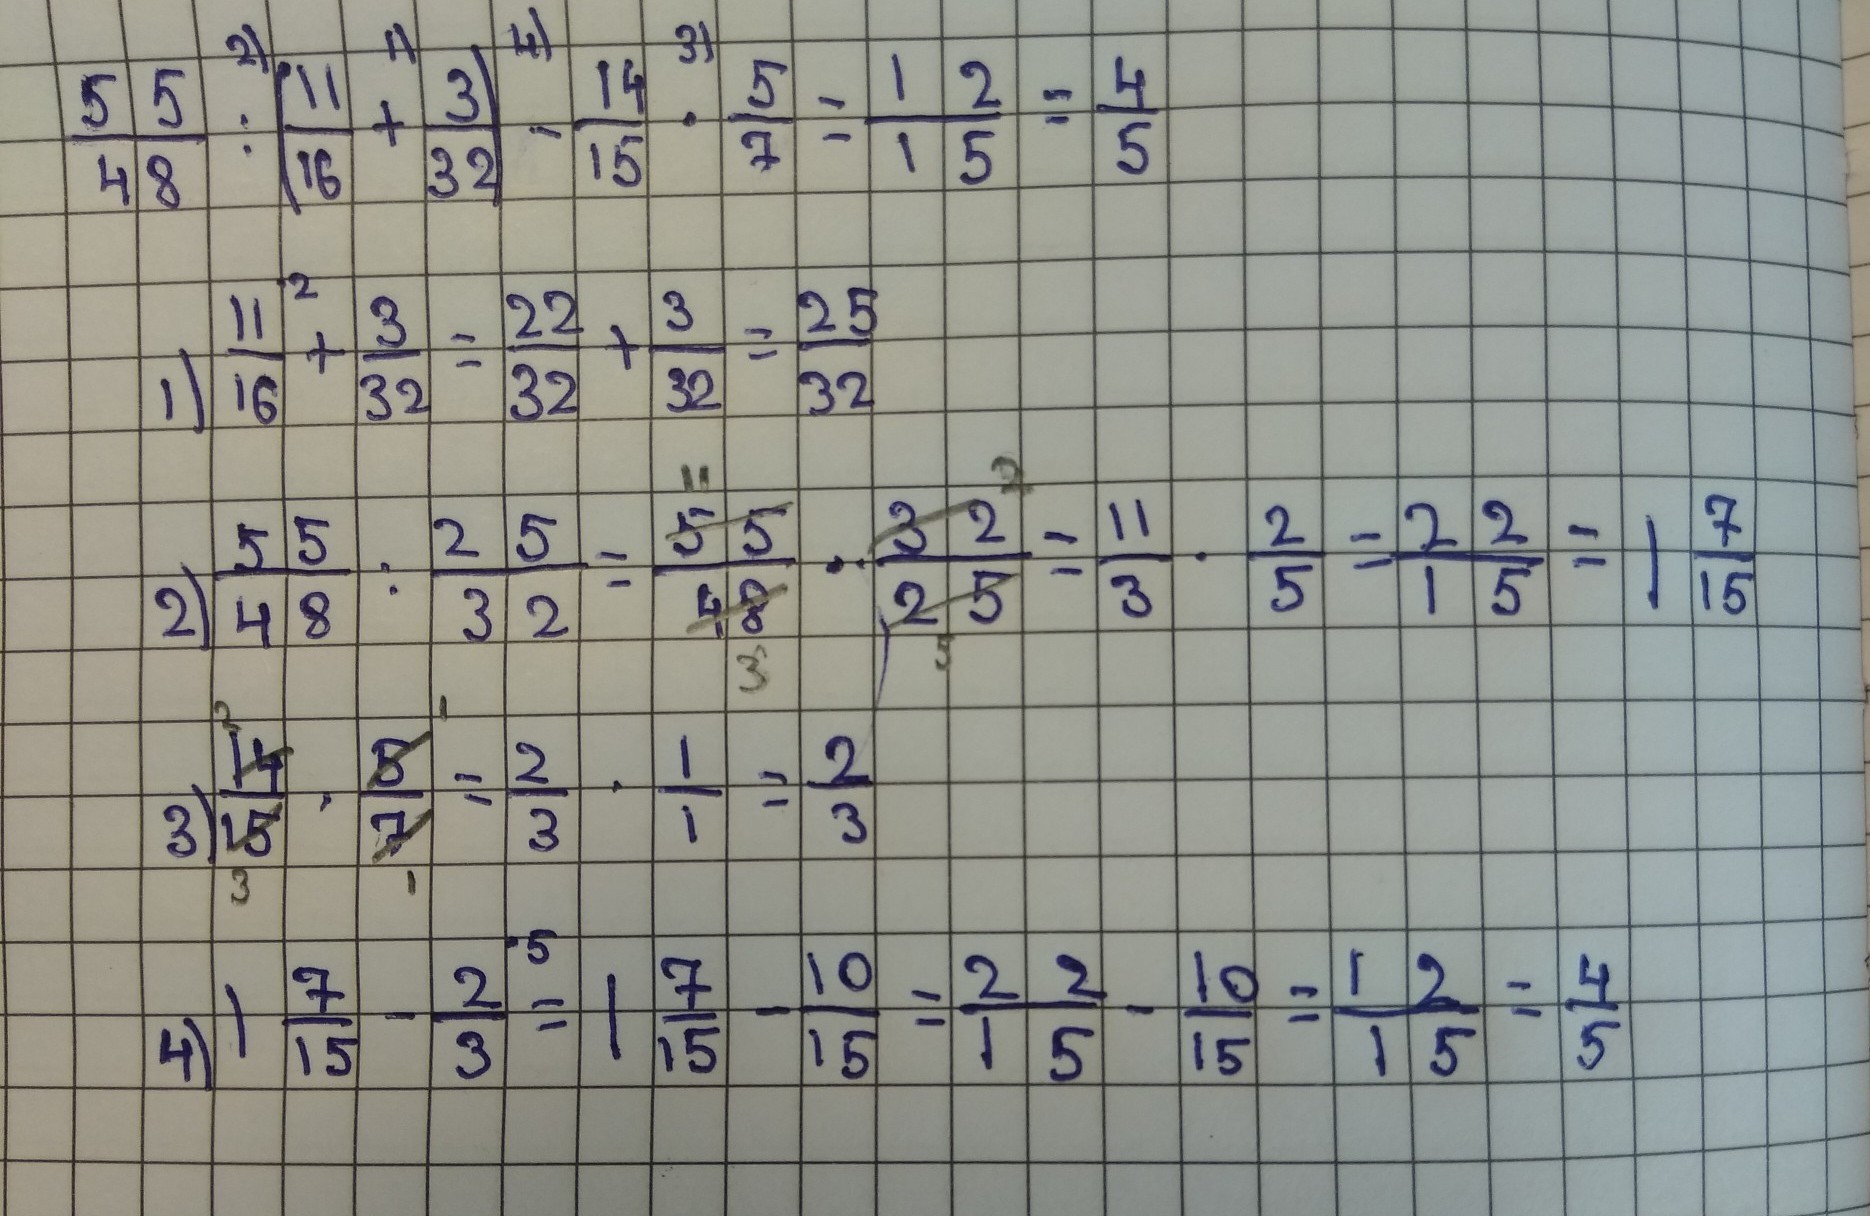 55/48 :²⁾ (11/16 +¹⁾ 3/32) -⁴⁾ 14/15 ·³⁾ 5/7 = 12/15 = 4/5
1) 11/16 ·2 + 3/32 = 22/32 + 3/32 = 25/32
2) 55/48 : 25/32 = 55/48 · 32/25 = 11/3 · 2/5 = 22/15 = 1 7/15
3) 14/15 · 5/7 = 2/3 · 1/1 = 2/3
4) 1 7/15 - 2/3 ·5 = 1 7/15 - 10/15 = 22/15 - 10/15 = 12/15 = 4/5